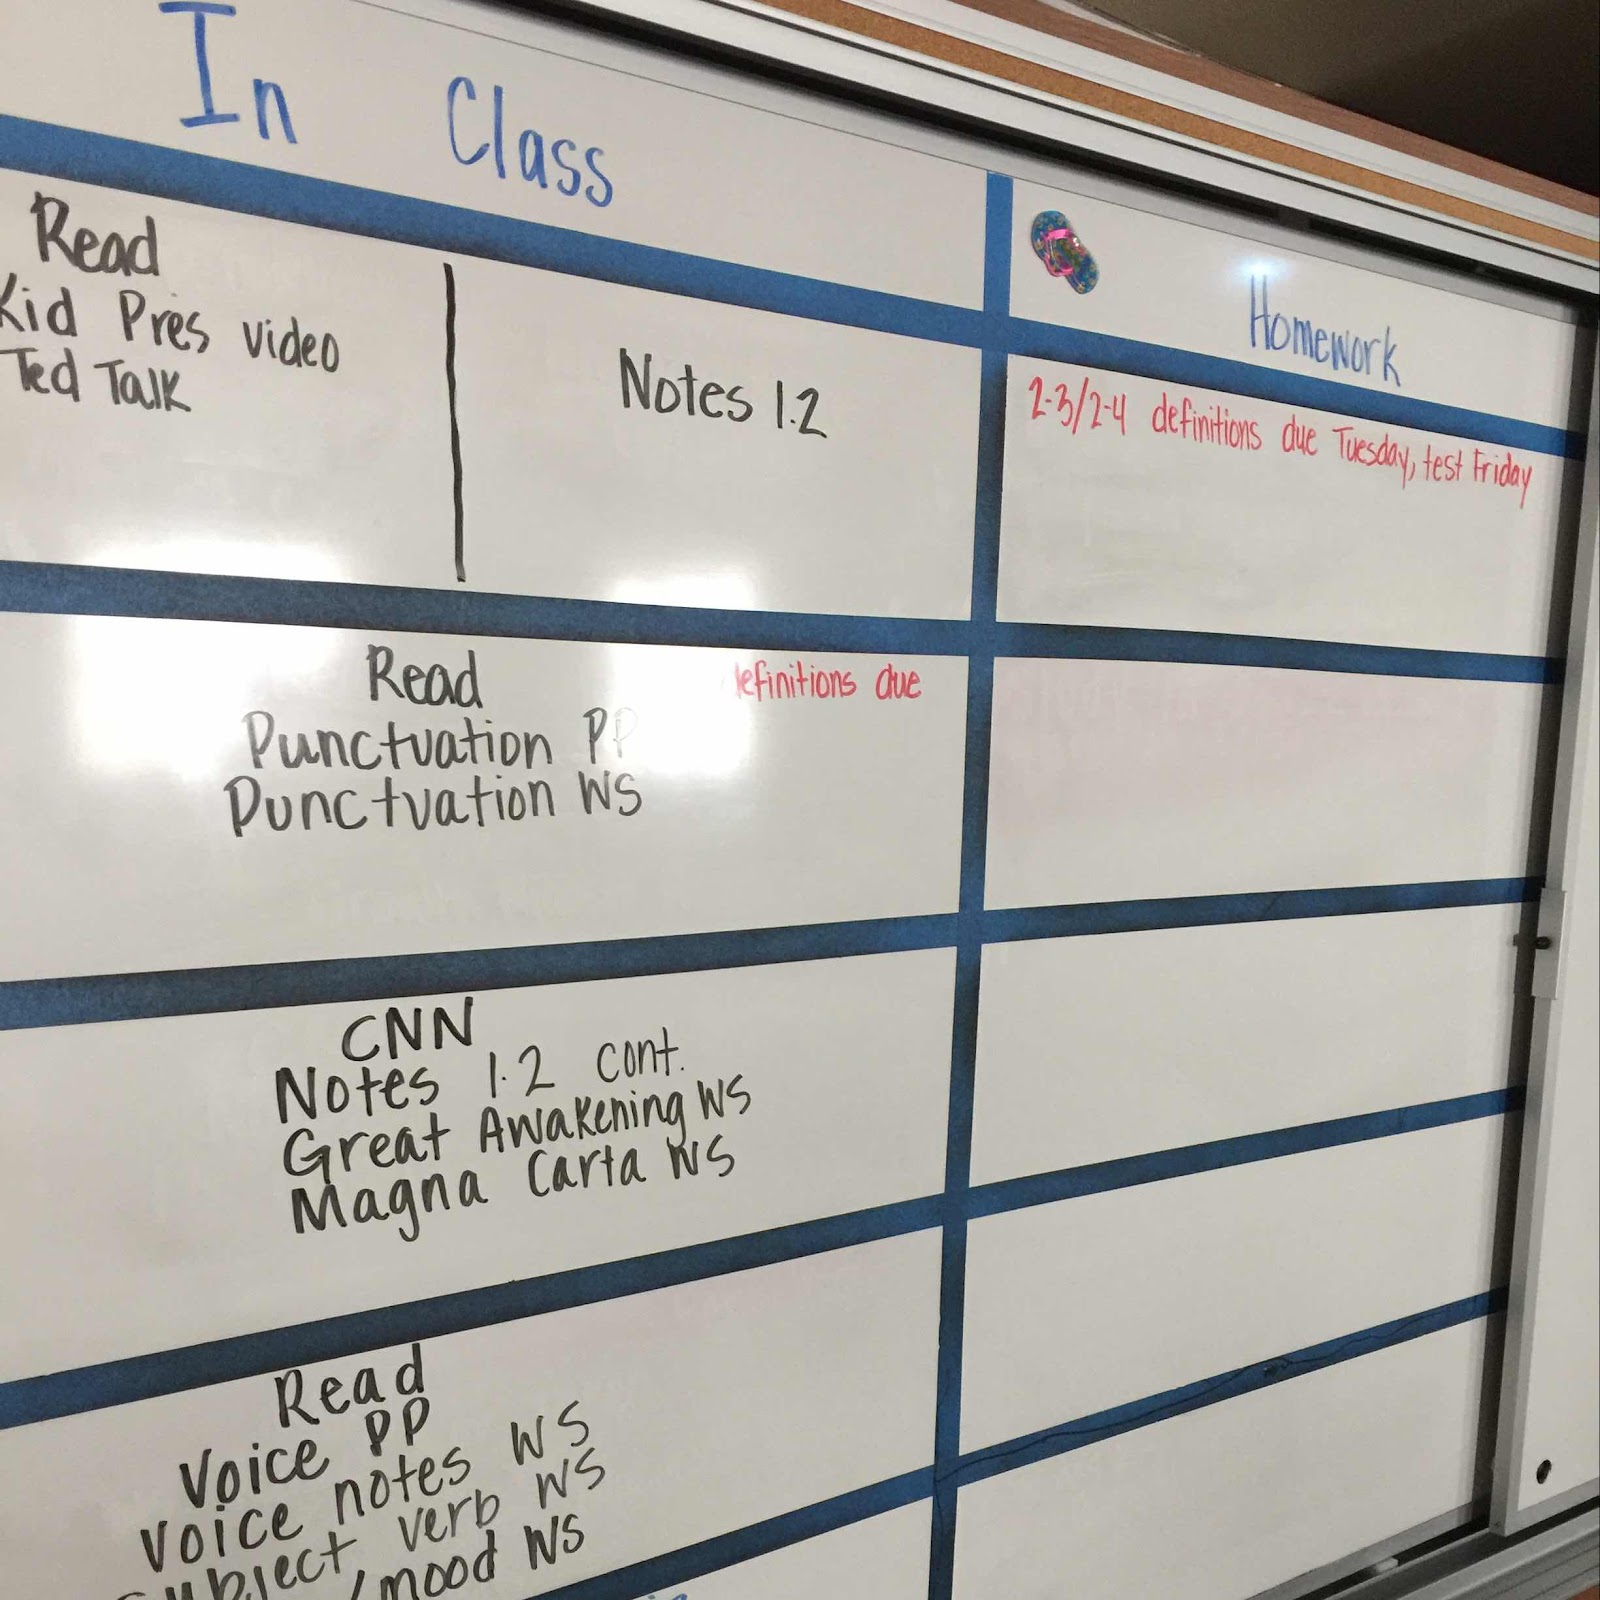 In Class
Homework
Read
Kid Pres video
Ted Talk
Notes 1.2
2-3/2-4 definitions due Tuesday, test Friday
Read
definitions due
Punctuation PP
Punctuation WS
CNN
Notes 1.2 cont.
Great Awakening WS
Magna Carta WS
Read
Voice PP
Voice notes WS
Subject verb WS
/mood WS